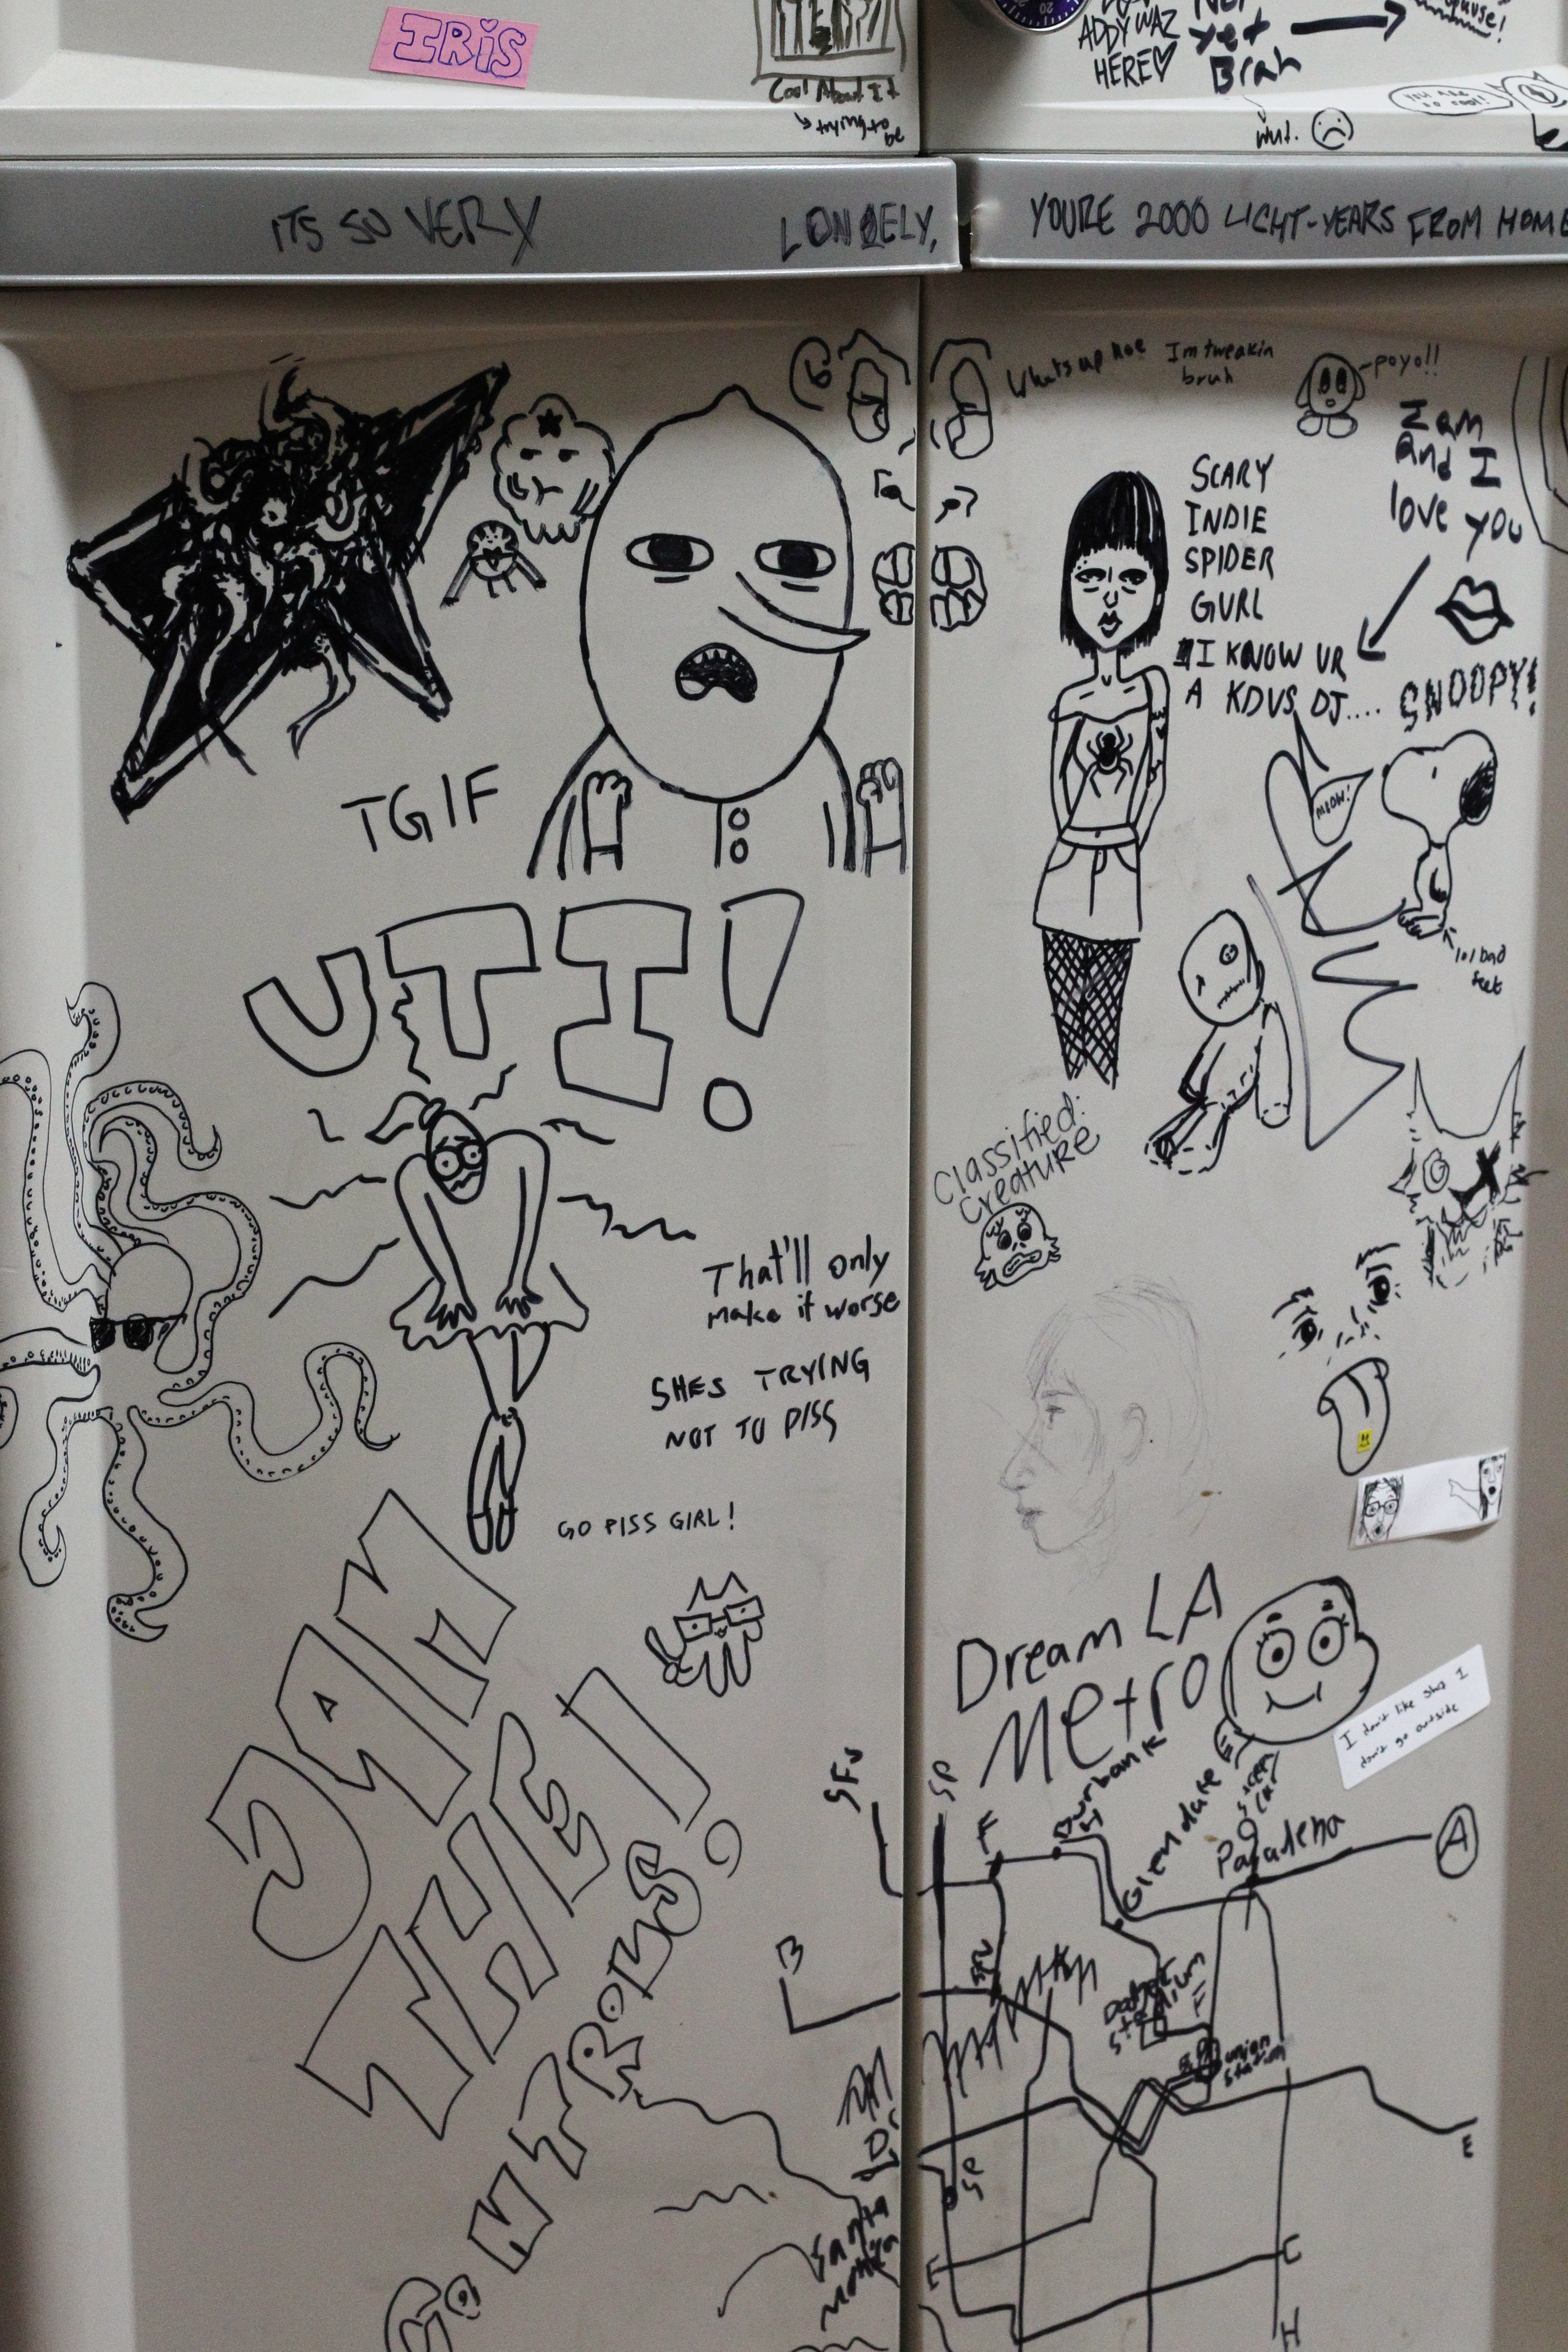 IRIS
Cool About It
ADDY WAZ
HERE
yet
Brah
wut.
ITS SO VERY
LONELY,
YOURE 2000 LIGHT-YEARS FROM HOME
Whats up hoe
Im tweakin
bruh
poyo!!
I am
and I
love you
SCARY
INDIE
SPIDER
GURL
I KNOW UR
A KDVS DJ....
SNOOPY!
MEOW!
lol bad
feet
TGIF
UTI!
Classified:
Creature
That'll only
make it worse
SHES TRYING
NOT TO PISS
GO PISS GIRL!
JAM
THE
CONTROLS
Dream LA
Metro
I don't like this I
don't go outside
SFV
SP
Burbank
Glendale
Pasadena
A
B
Dodger
Stadium
F
union
station
D
SP
E
Santa
Monica
E
C
H